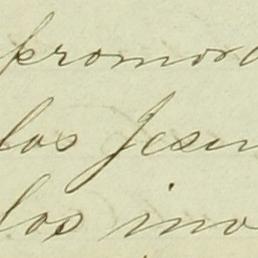 promov
los Jesu
los ino